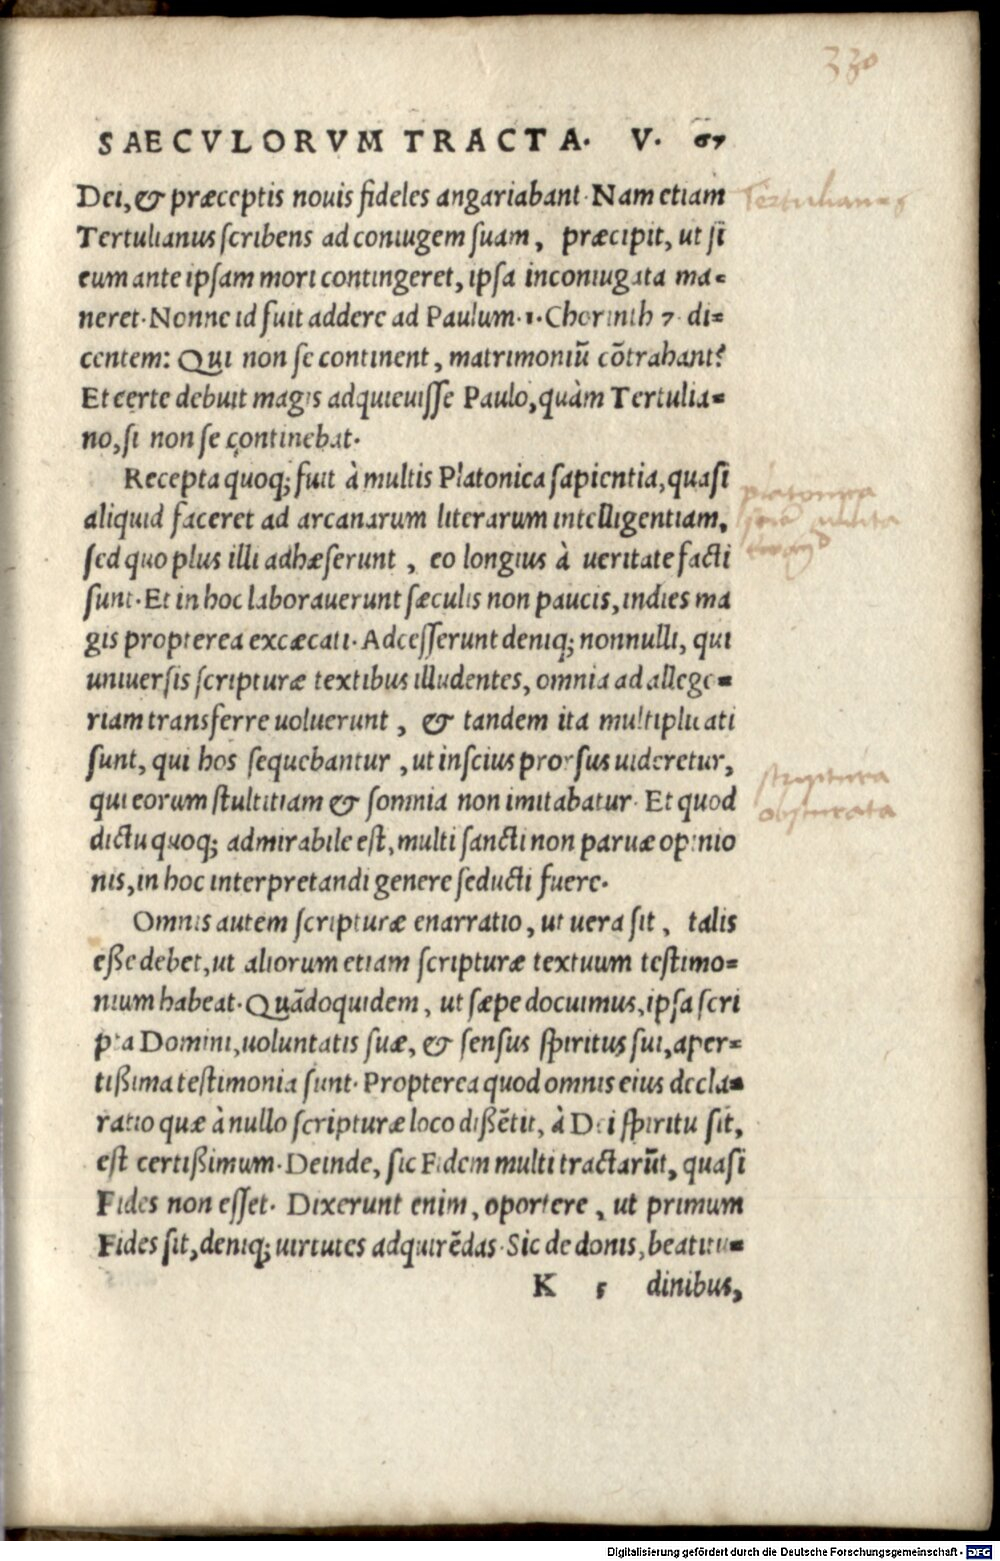 330
SAECVLORVM TRACTA. V. 67
Dei, & præceptis nouis fideles angariabant. Nam etiam
Tertulianus
Tertulianus scribens ad coniugem suam, præcipit, ut si
eum ante ipsam mori contingeret, ipsa inconiugata ma=
neret. Nonne id fuit addere ad Paulum. 1. Chorinth 7. di=
centem: Qui non se continent, matrimoniũ cõtrahant?
Et certe debuit magis adquieuisse Paulo, quàm Tertulia=
no, si non se continebat.
Recepta quoq; fuit à multis Platonica sapientia, quasi
platonica
aliquid faceret ad arcanarum literarum intelligentiam,
sed quo plus illi adhæserunt, eo longius à ueritate facti
sunt. Et in hoc laborauerunt sæculis non paucis, indies ma
gis propterea excæcati. Adcesserunt deniq; nonnulli, qui
uniuersis scripturæ textibus illudentes, omnia ad allego=
riam transferre uoluerunt, & tandem ita multiplicati
sunt, qui hos sequebantur, ut inscius prorsus uideretur,
scriptura
qui eorum stultitiam & somnia non imitabatur. Et quod
obscurata
dictu quoq; admirabile est, multi sancti non paruæ opinio
nis, in hoc interpretandi genere seducti fuere.
Omnis autem scripturæ enarratio, ut uera sit, talis
eße debet, ut aliorum etiam scripturæ textuum testimo=
nium habeat. Quãdoquidem, ut sæpe docuimus, ipsa scri
pta Domini, uoluntatis suæ, & sensus spiritus sui, aper=
tißima testimonia sunt. Propterea quod omnis eius decla=
ratio quæ à nullo scripturæ loco dißẽtit, à Dei spiritu sit,
est certißimum. Deinde, sic Fidem multi tractarũt, quasi
Fides non esset. Dixerunt enim, oportere, ut primum
Fides sit, deniq; uirtutes adquirẽdas. Sic de donis, beatitu=
K 5 dinibus,
Digitalisierung gefördert durch die Deutsche Forschungsgemeinschaft - DFG